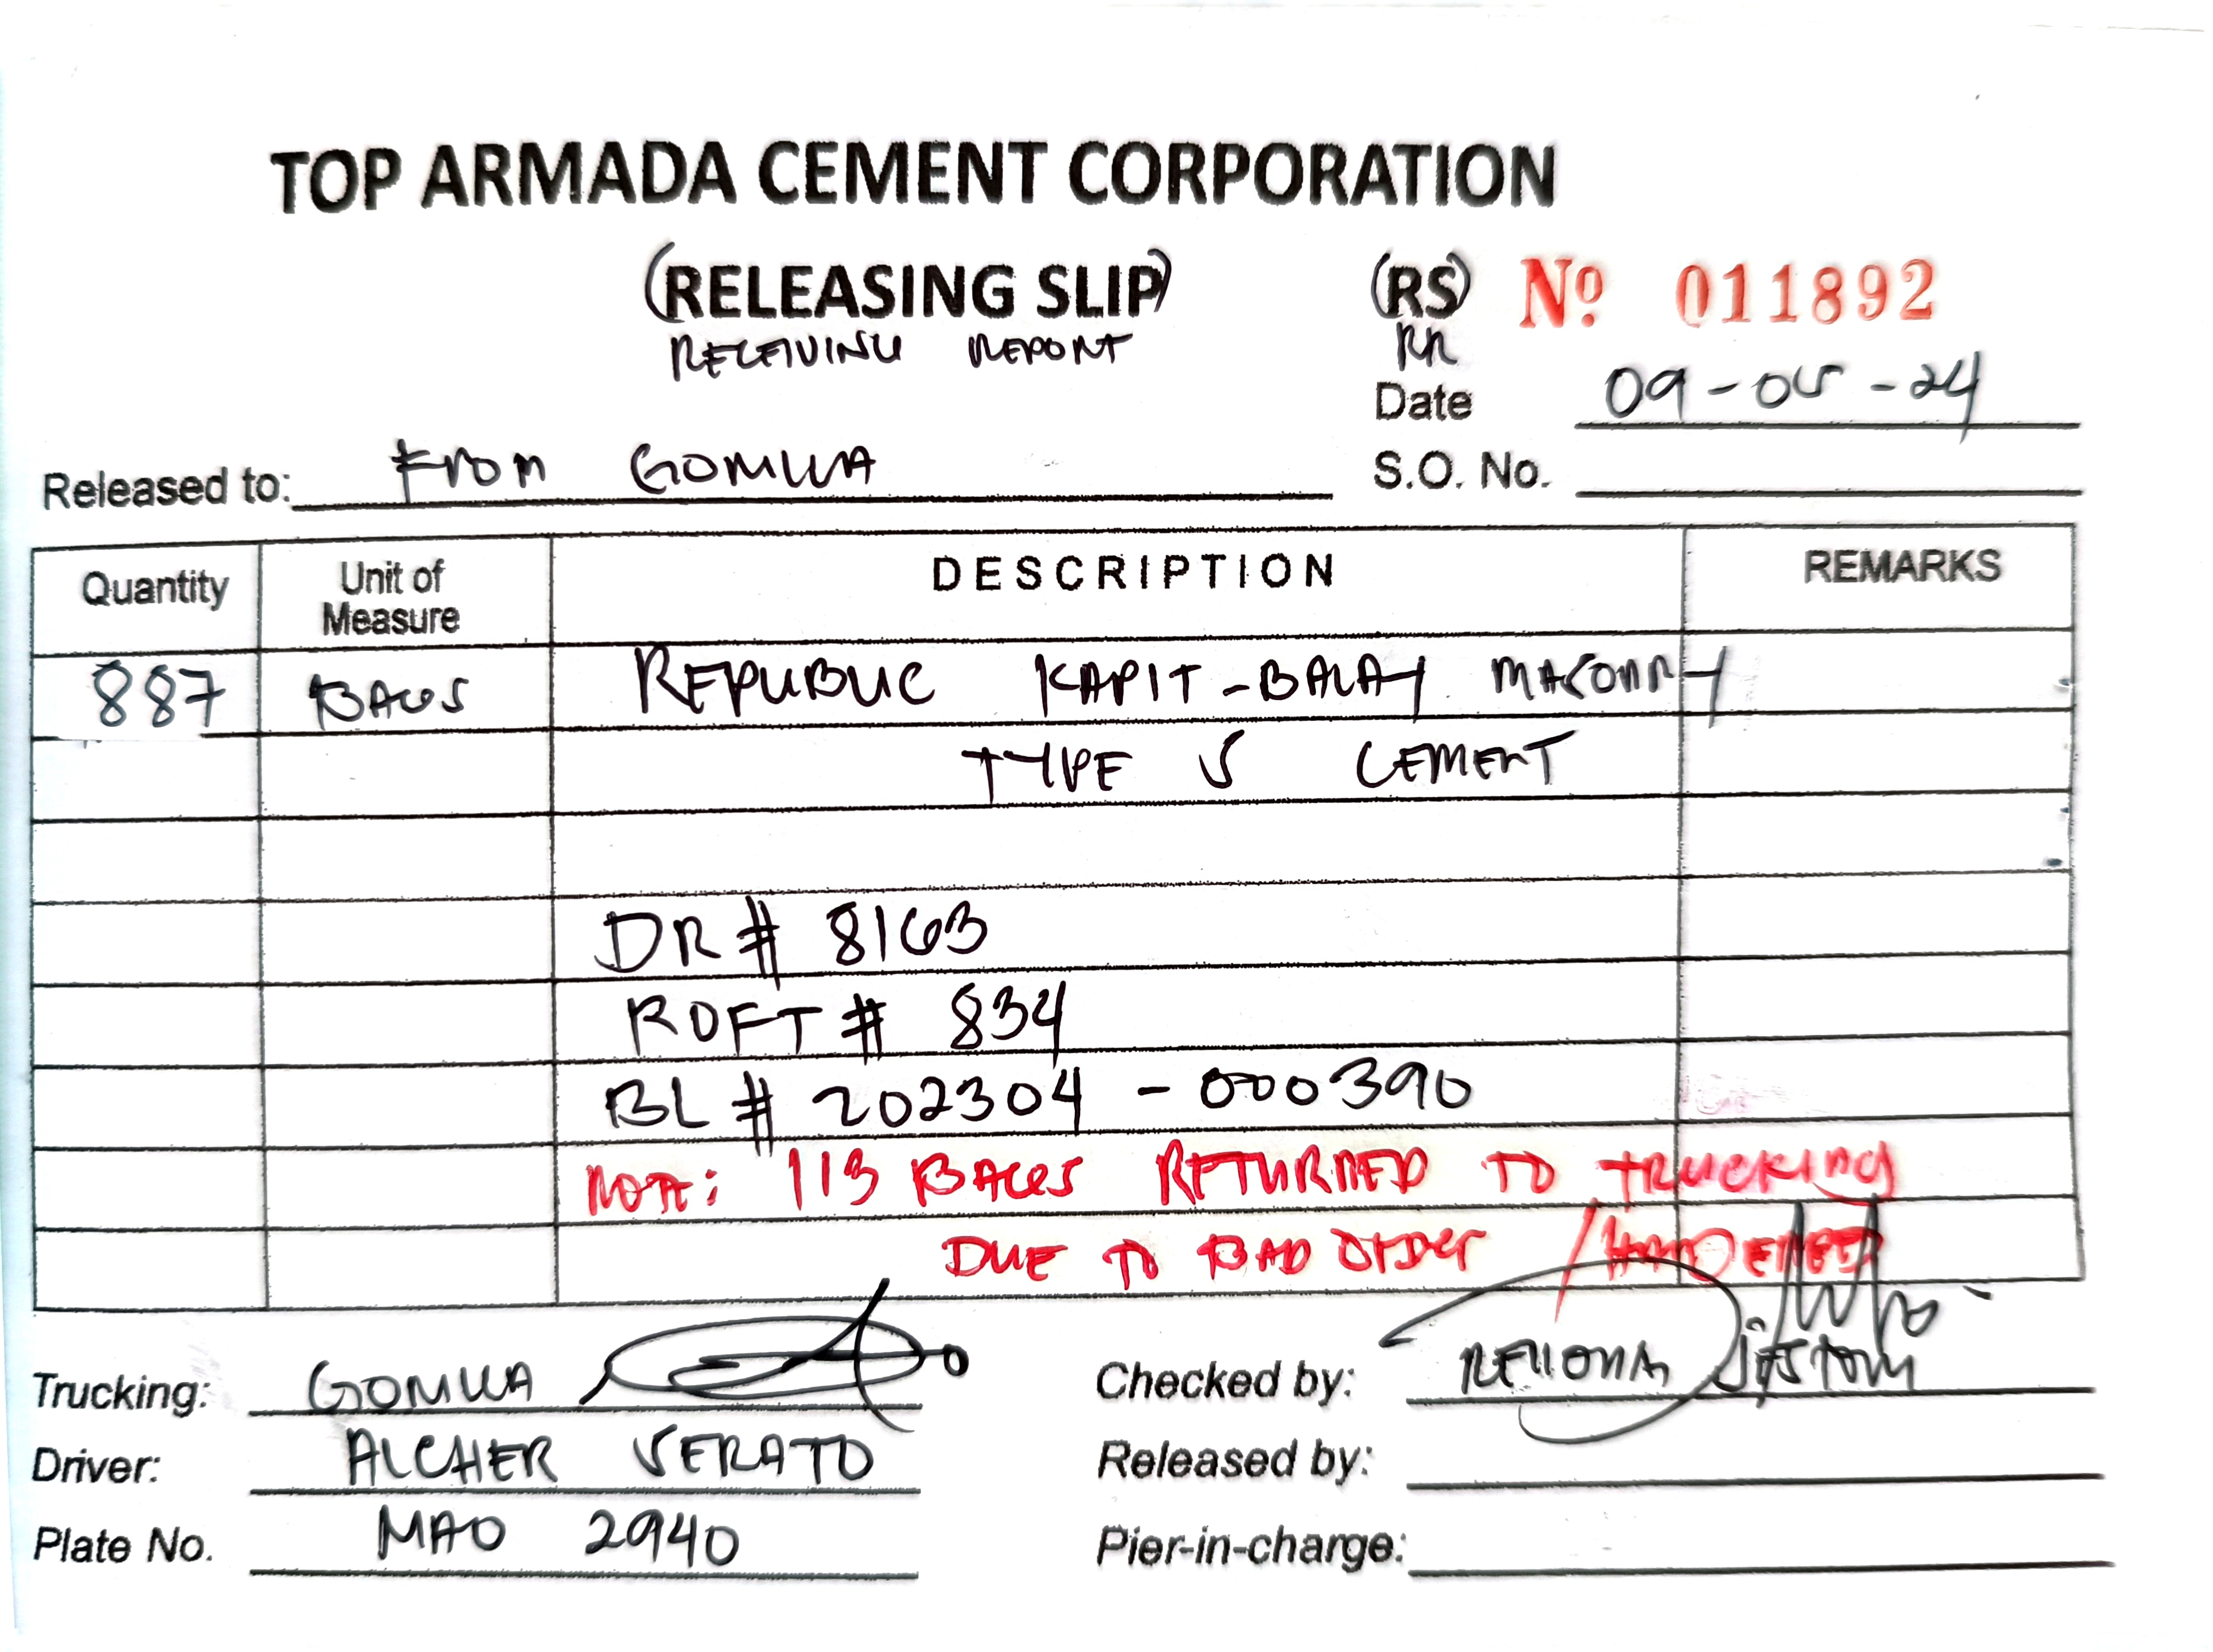 TOP ARMADA CEMENT CORPORATION
(RELEASING SLIP) (RS) Nº 011892
RECEIVING REPORT RR
Date 09-05-24
Released to: From GOMWA S.O. No.
Quantity Unit of Measure DESCRIPTION REMARKS
887 BAGS REPUBLIC KAPIT-BALAY MASONRY
TYPE S CEMENT
DR# 8163
ROFT# 834
BL# 202304-000390
NOTE: 113 BAGS RETURNED TO TRUCKING
DUE TO BAD ORDER / HARDENED
Trucking: GOMWA Checked by:
Driver: ALCHER SERATO Released by:
Plate No. MAO 2940 Pier-in-charge: